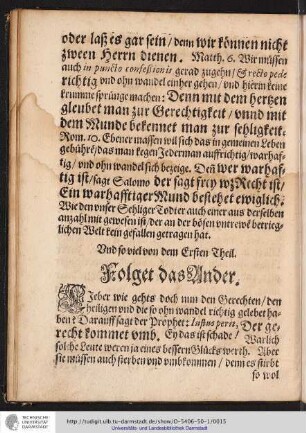 oder laß es gar sein / denn wir können nicht
zween Herrn dienen. Matth. 6. Wir müssen
auch in puncto confessionis gerad zugehn / & recto pede
richtig vnd ohn wandel einher gehen / vnd hierin keine
krumme sprünge machen: Denn mit dem hertzen
gleubet man zur Gerechtigkeit / vnnd mit
dem Munde bekennet man zur sehligkeit.
Rom. 10. Ebener massen wil sichs das in gemeinen Leben
gebühre / das man kegen Jederman auffrichtig / warhaf-
tig / vnd ohn wandel sich bezeige. Den wer warhaf-
tig ist / sagt Salomo der sagt frey wz Recht ist /
Ein warhafftiger Mund bestehet ewiglich.
Wie den vnser Sehliger Todter auch einer aus derselben
anzahl mit gewesen ist / der an der bösen vntrewẽ betrieg-
lichen Welt kein gefallen getragen hat.
Vnd so viel von dem Ersten Theil.
Folget das Ander.
Lieber wie gehts doch nun den Gerechten / den
heiligen vnd die so ohn wandel richtig gelebet ha-
ben? Darauff sagt der Prophet: Iustus perit, Der ge-
recht kommet vmb. Ey das ist schade / Warlich
solche Leute weren ja eines bessern Glücks werth. Aber
sie müssen auch sterben vnd vmbkommen / denn es stirbt
so wol
TECHNISCHE
UNIVERSITÄT
DARMSTADT
http://tudigit.ulb.tu-darmstadt.de/show/O-5406-50-1/0015
Universitäts- und Landesbibliothek Darmstadt